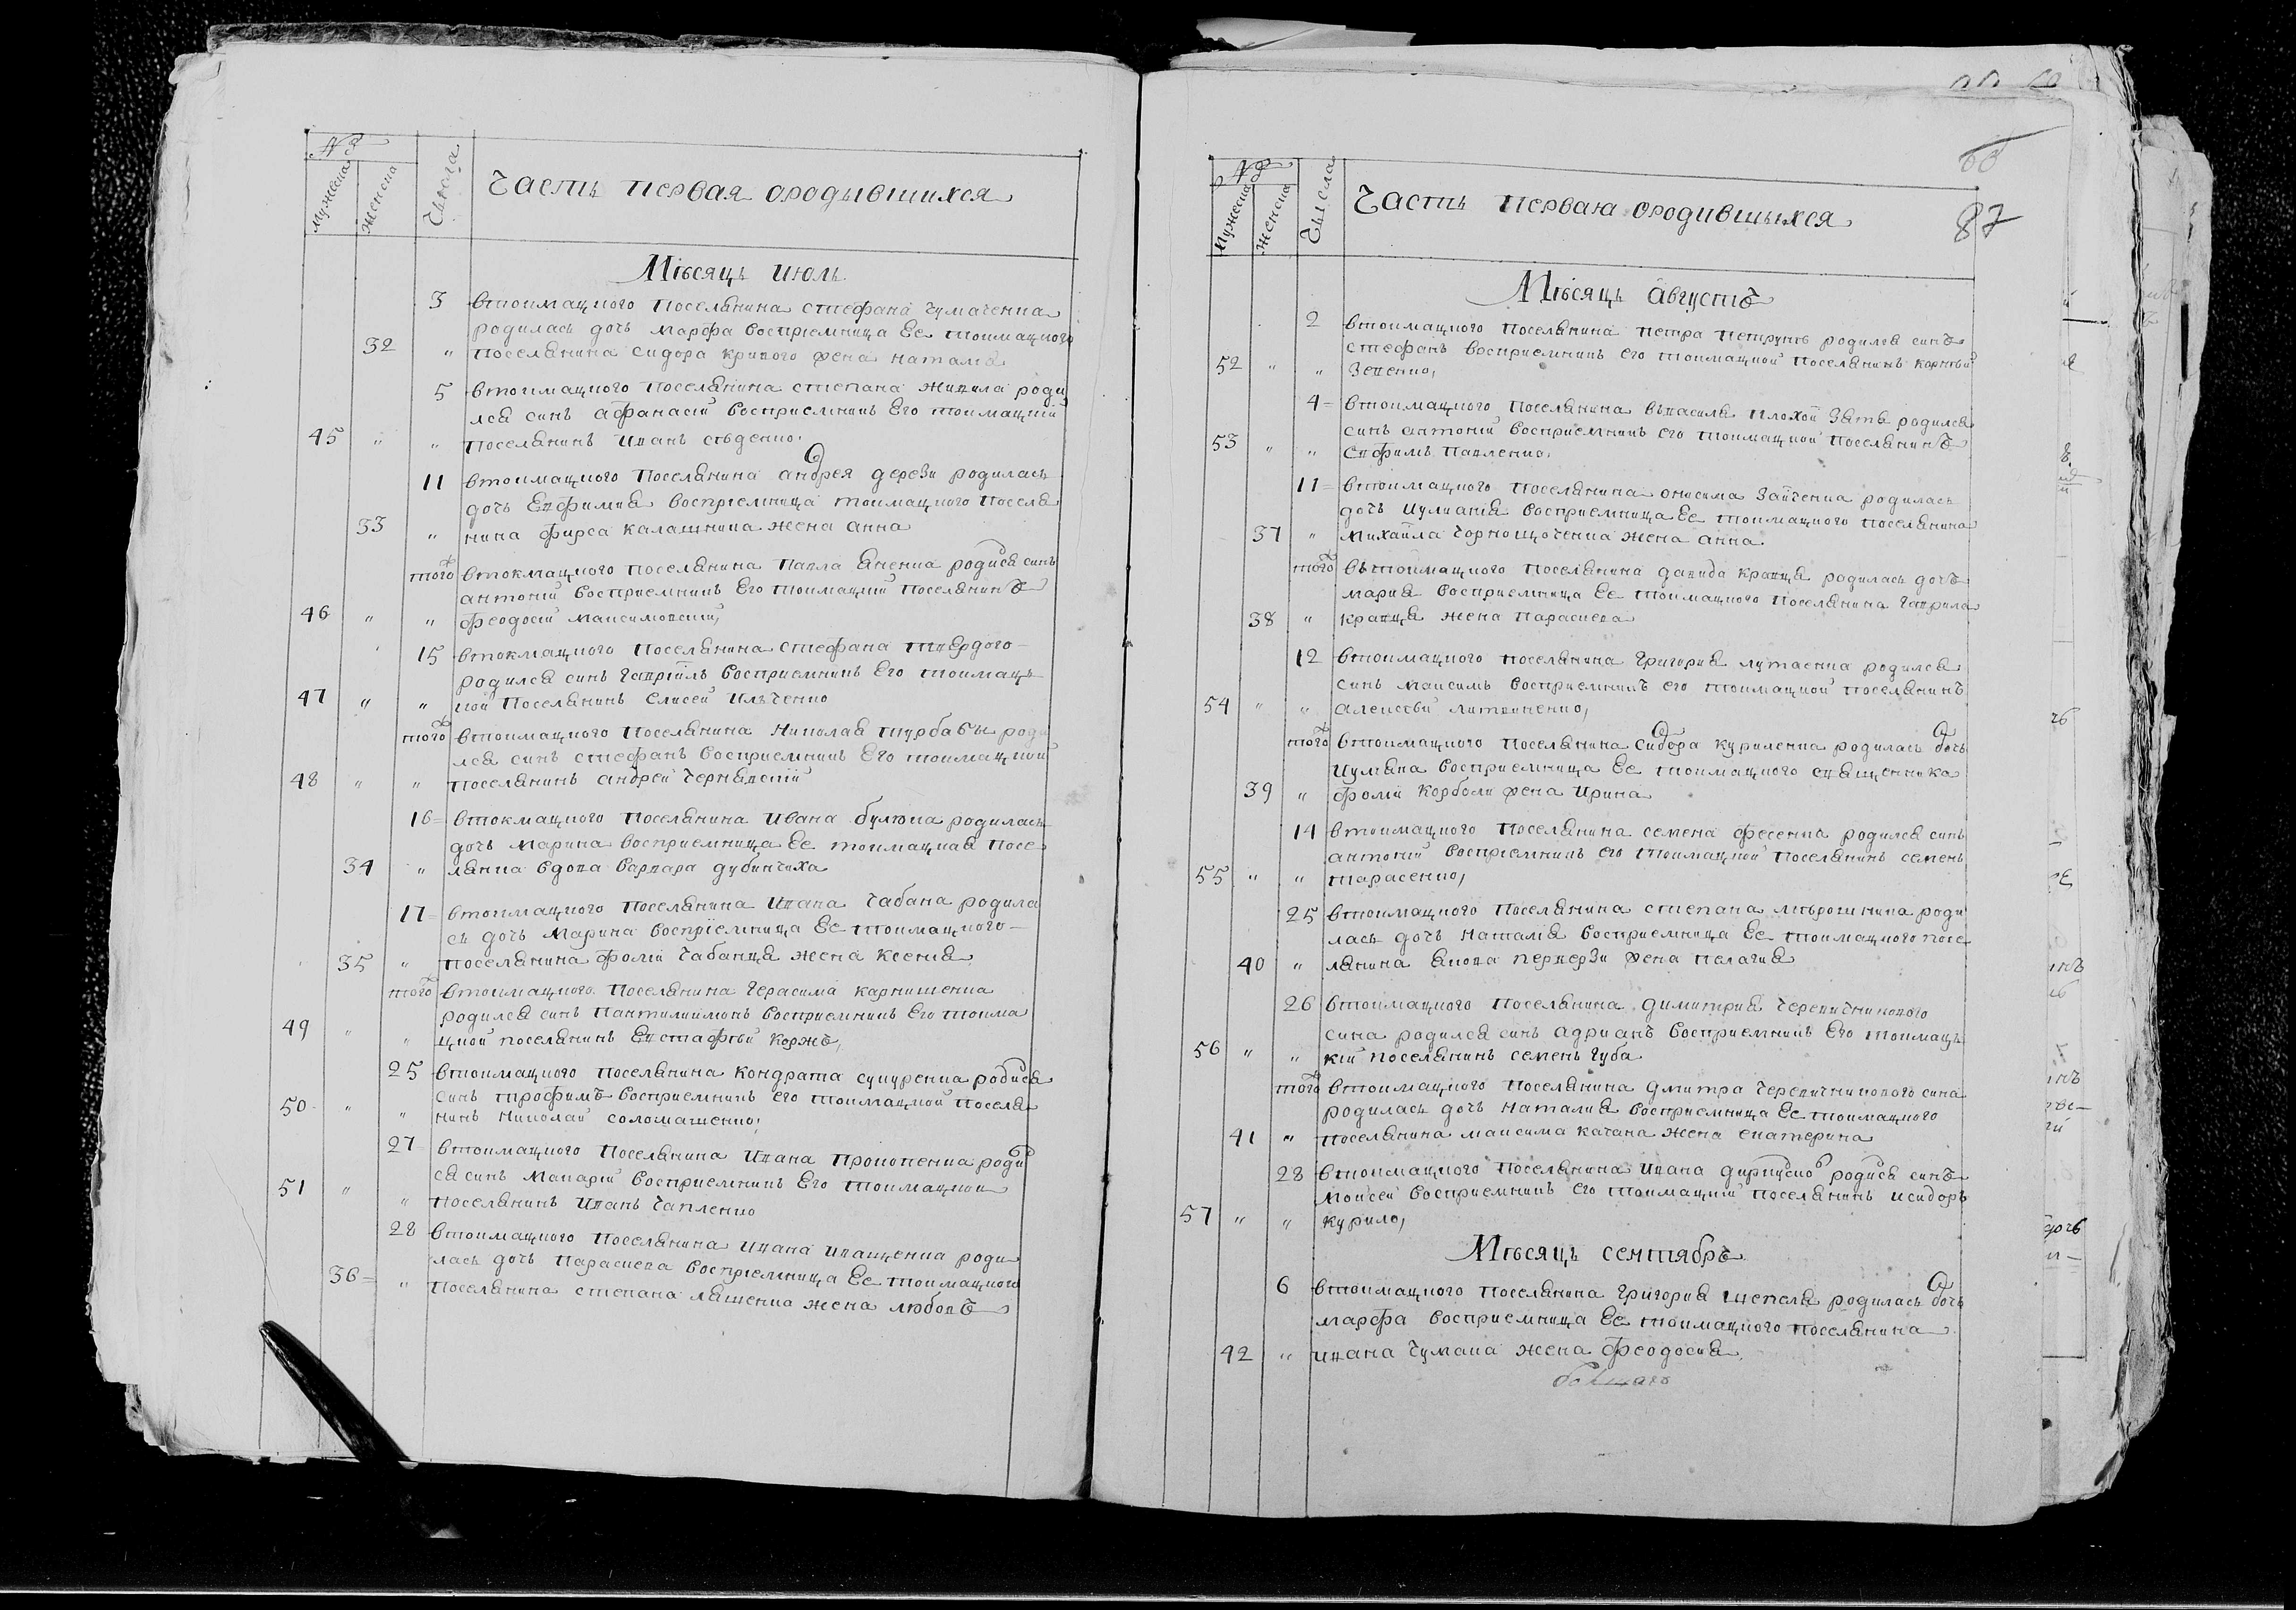 №
мужеска
женска
Числа
Часть первая ородывшихся
Мѣсяцъ июль
3 втокмацкого поселянина стефана чумаченка
родилась дочь марфа восприемница Ее токмацкого
32 " поселянина сидора кривого жена наталія
5 втокмацкого поселянина степана живила роди
лся синъ афанасій восприемникъ Его токмацкій
45 " " поселянинъ иванъ стѣденко.
11 втокмацкого поселянина андрея дерези родилась
дочь Евфимия восприемница токмацкого поселя
33 " нина фирса калашника жена анна
того втокмацкого поселянина павла яненка родися синъ
антоній восприемникъ Его токмацкій поселянинъ
46 " " феодосій максимовскій,
15 втокмацкого поселянина стефана твердого
родился синъ гавріилъ восприемникъ Его токмацъ
47 " " кой поселянинъ Елисей ильченко
того втокмацкого поселянина николая турбабы роди
лся синъ стефанъ восприемникъ Его токмацкой
48 " " поселянинъ андрей чернявскій
16 втокмацкого поселянина ивана булюка родилась
дочь марина восприемница Ее токмацкая посе
34 " лянка вдова варвара дубинчиха
17 втокмацкого поселянина ивана чабана родила
сь дочь марина восприемница Ее токмацкого
35 " поселянина фомы чабанца жена ксения
того втокмацкого поселянина герасима карнишенка
родился синъ пантилиймонъ восприемникъ Его токма
49 " " цкой поселянинъ Евстафѣй коржъ,
25 втокмацкого поселянина кондрата сукуренка родися
синъ трофимъ восприемникъ Его токмацкой поселя
50 " " нинъ николай соломашенко,
27 втокмацкого поселянина ивана прокопенка роди
ся синъ макарій восприемникъ Его токмацкой
51 " " поселянинъ иванъ чапленко
28 втокмацкого поселянина ивана иващенка роди
лась дочь параскева восприемница Ее токмацкого
36 " поселянина степана ляшенка жена любовъ
№
мужеска
женска
Числа
Часть первая ородившыхся
87
Мѣсяцъ августъ
2 втокмацкого поселянина петра петрунѣ родился синъ
стефанъ восприемникъ его токмацкой поселянинъ корнѣй
52 " " зенченко,
4 втокмацкого поселянина въасиля плохой зять родился
синъ антоній восприемникъ его токмацкой поселянинъ
53 " " Евфимъ павленко.
11 втокмацкого поселянина онисима зайченка родилась
дочь иулиания восприемница Ее токмацкого поселянина
37 " михайла чорнощоченка жена анна.
того вътокмацкого поселянина давида кравца родилась дочь
мария восприемница Ее токмацкого поселянина гаврила
38 " кравца жена параскева
12 втокмацкого поселянина григория лутаенка родился
синъ максимъ восприемникъ его токмацкой поселянинъ
54 " " алексѣй литвиненко,
того втокмацкого поселянина сидора куриленка родилась дочь
иуляна восприемница Ее токмацкого священника
39 " фомы корболи жена ирина
14 втокмацкого поселянина семена фесенка родился синъ
антоній восприемникъ его токмацкой поселянинъ семенъ
55 " " тарасенко,
25 втокмацкого поселянина степана мѣрошника роди
лась дочь наталія восприемница Ее токмацкого посе
40 " лянина якова перверзи жена палагия
26 втокмацкого поселянина димитрия черевичникового
сина родился синъ адрианъ восприемникъ Его токмацъ
56 " " кій поселянинъ семенъ губа
того втокмацкого поселянина дмитра черевичникового сина
родилась дочь наталия восприемница Ее токмацкого
41 " поселянина максима качана жена екатерина
28 втокмацкого поселянина ивана родися синъ
моисей восприемникъ его токмацкій поселянинъ исидоръ
57 " " курило,
Мѣсяцъ сентябръ
6 втокмацкого поселянина григория щепеля родилась дочь
марфа восприемница Ее токмацкого поселянина
42 " ивана чумака жена феодосия.